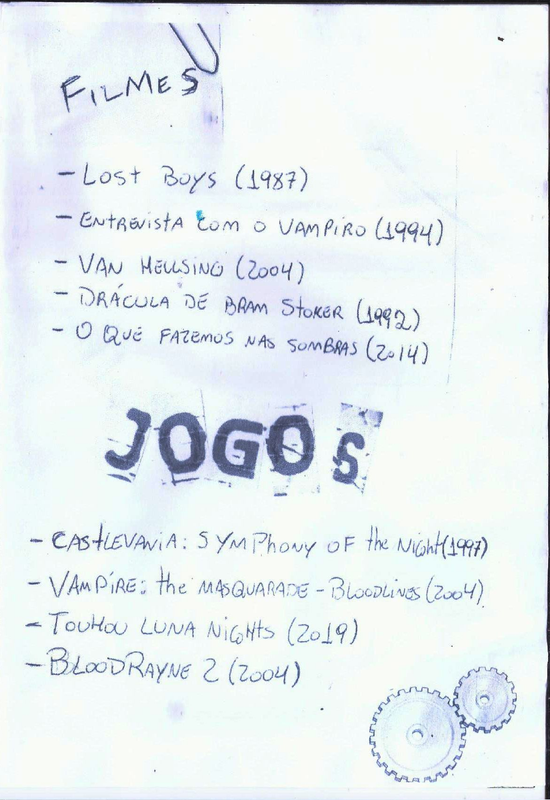 FILMES
- Lost Boys (1987)
- ENTREVISTA COM O VAMPIRO (1994)
- VAN HELLSING (2004)
- DRÁCULA DE BRAM STOKER (1992)
- O QUE FAZEMOS NAS SOMBRAS (2014)
JOGOS
- CASTLEVANIA: SYMPhony OF the Night (1997)
- VAMPIRE: the MASQUARADE - BLOODLINES (2004)
- TOUHOU LUNA NIGHTS (2019)
- BLOODRAYNE 2 (2004)